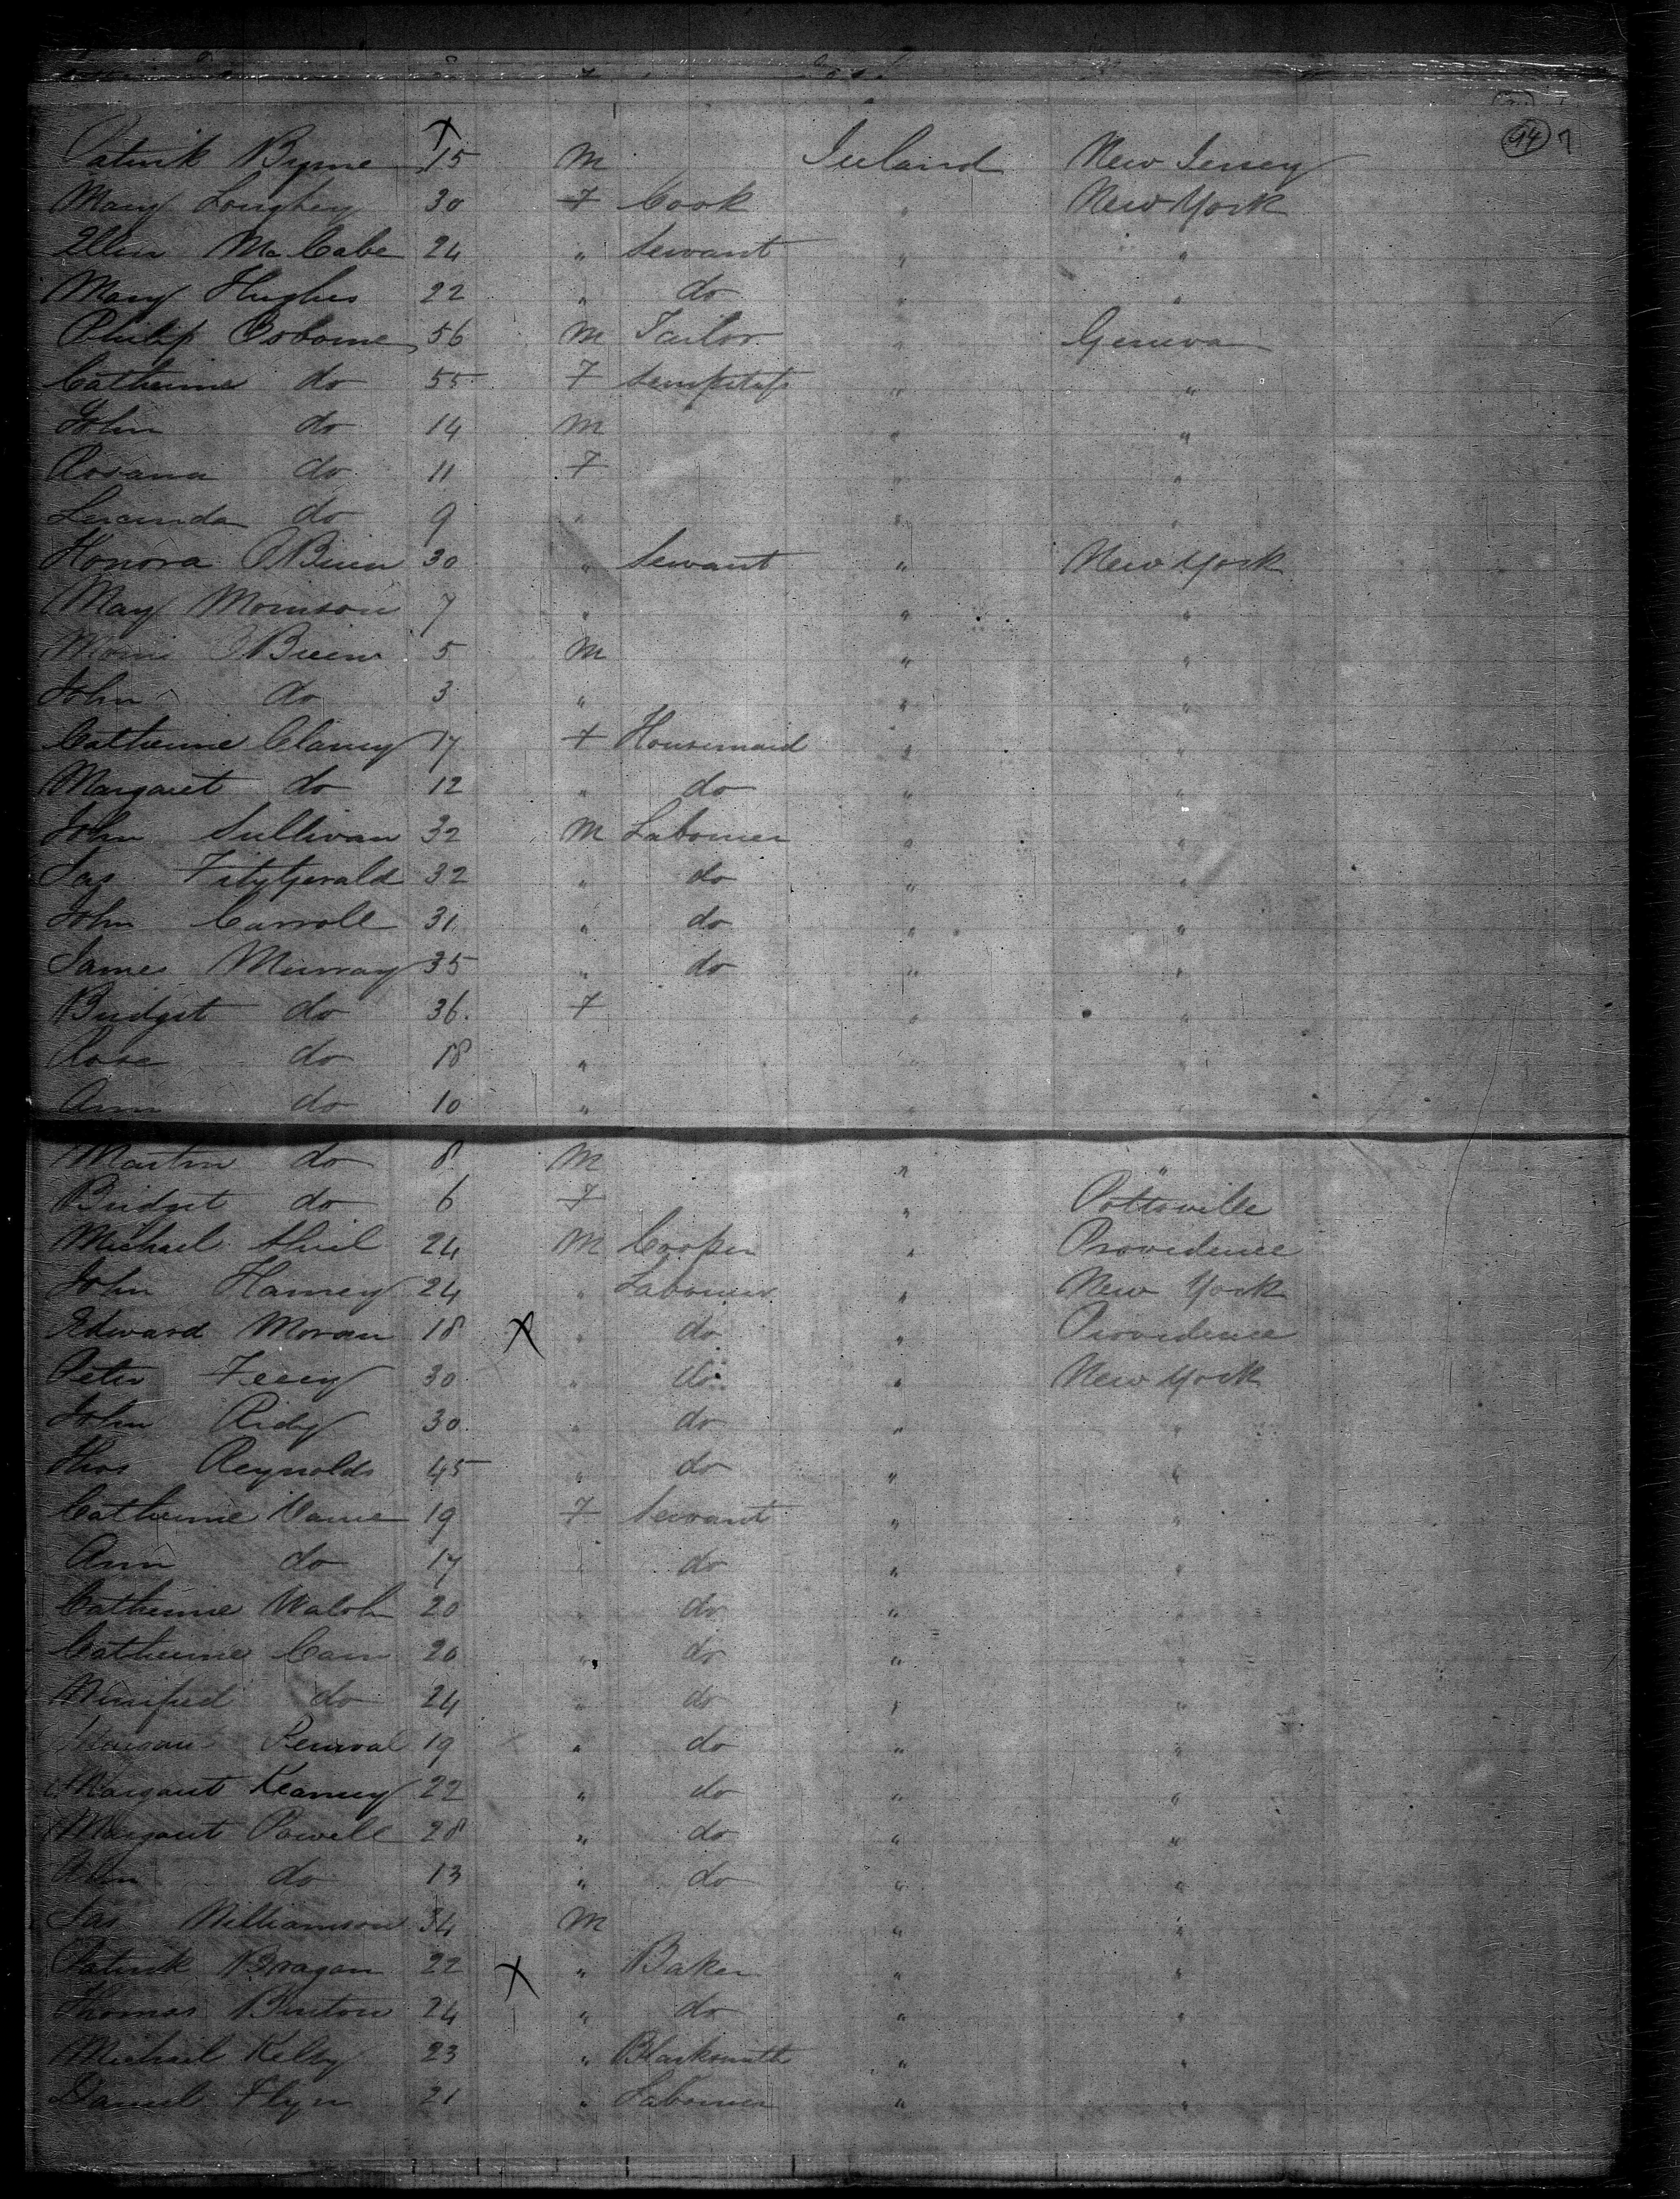 94 7
Patrick Byrne 15 M Ireland New Jersey
Mary Loughey 30 F Cook " New York
Ellen McCabe 24 " Servant " "
Mary Hughes 22 " do " "
Philip Osborne 56 M Tailor " Geneva
Catherine do 55 F " "
John do 14 M " "
Rosanna do 11 F " "
Lucinda do 9 " " "
Honora OBrien 30 " Servant " New York
May Morrison 7 " " "
OBrien 5 M " "
John do 3 " " "
Catherine Clancy 17 F Housemaid " "
Margaret do 12 " do " "
John Sullivan 32 M Labourer " "
Jas FitzGerald 32 " do " "
John Carroll 31 " do " "
James Murray 35 " do " "
Bridget do 36 F " "
Rose do 18 " " "
Ann do 10 " " "
Martin do 8 M " "
Bridget do 6 F " Pottsville
Michael Shiel 24 M Cooper " Providence
John Harney 24 " Labourer " New York
Edward Moran 18 " do " Providence
Peter 30 " do " New York
John Ridy 30 " do " "
Thos Reynolds 45 " do " "
Catherine 19 F Servant " "
Ann do 17 " do " "
Catherine Walsh 20 " do " "
Catherine Cain 20 " do " "
Winifred do 24 " do " "
19 " do " "
Margaret Kearney 22 " do " "
Margaret Powell 28 " do " "
Ann do 13 " do " "
Jas Williamson 34 M " "
Patrick Bragan 22 " Baker " "
Thomas Burton 24 " do " "
Michael Kelby 23 " Blacksmith " "
Daniel Flyn 21 " Labourer " "